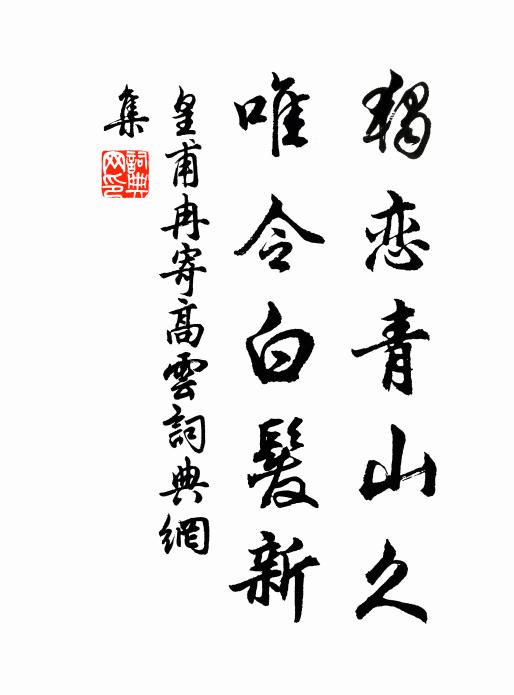 獨恋青山久
唯令白髮新
皇甫冉寄高雲詞典網
集
詞典
网印